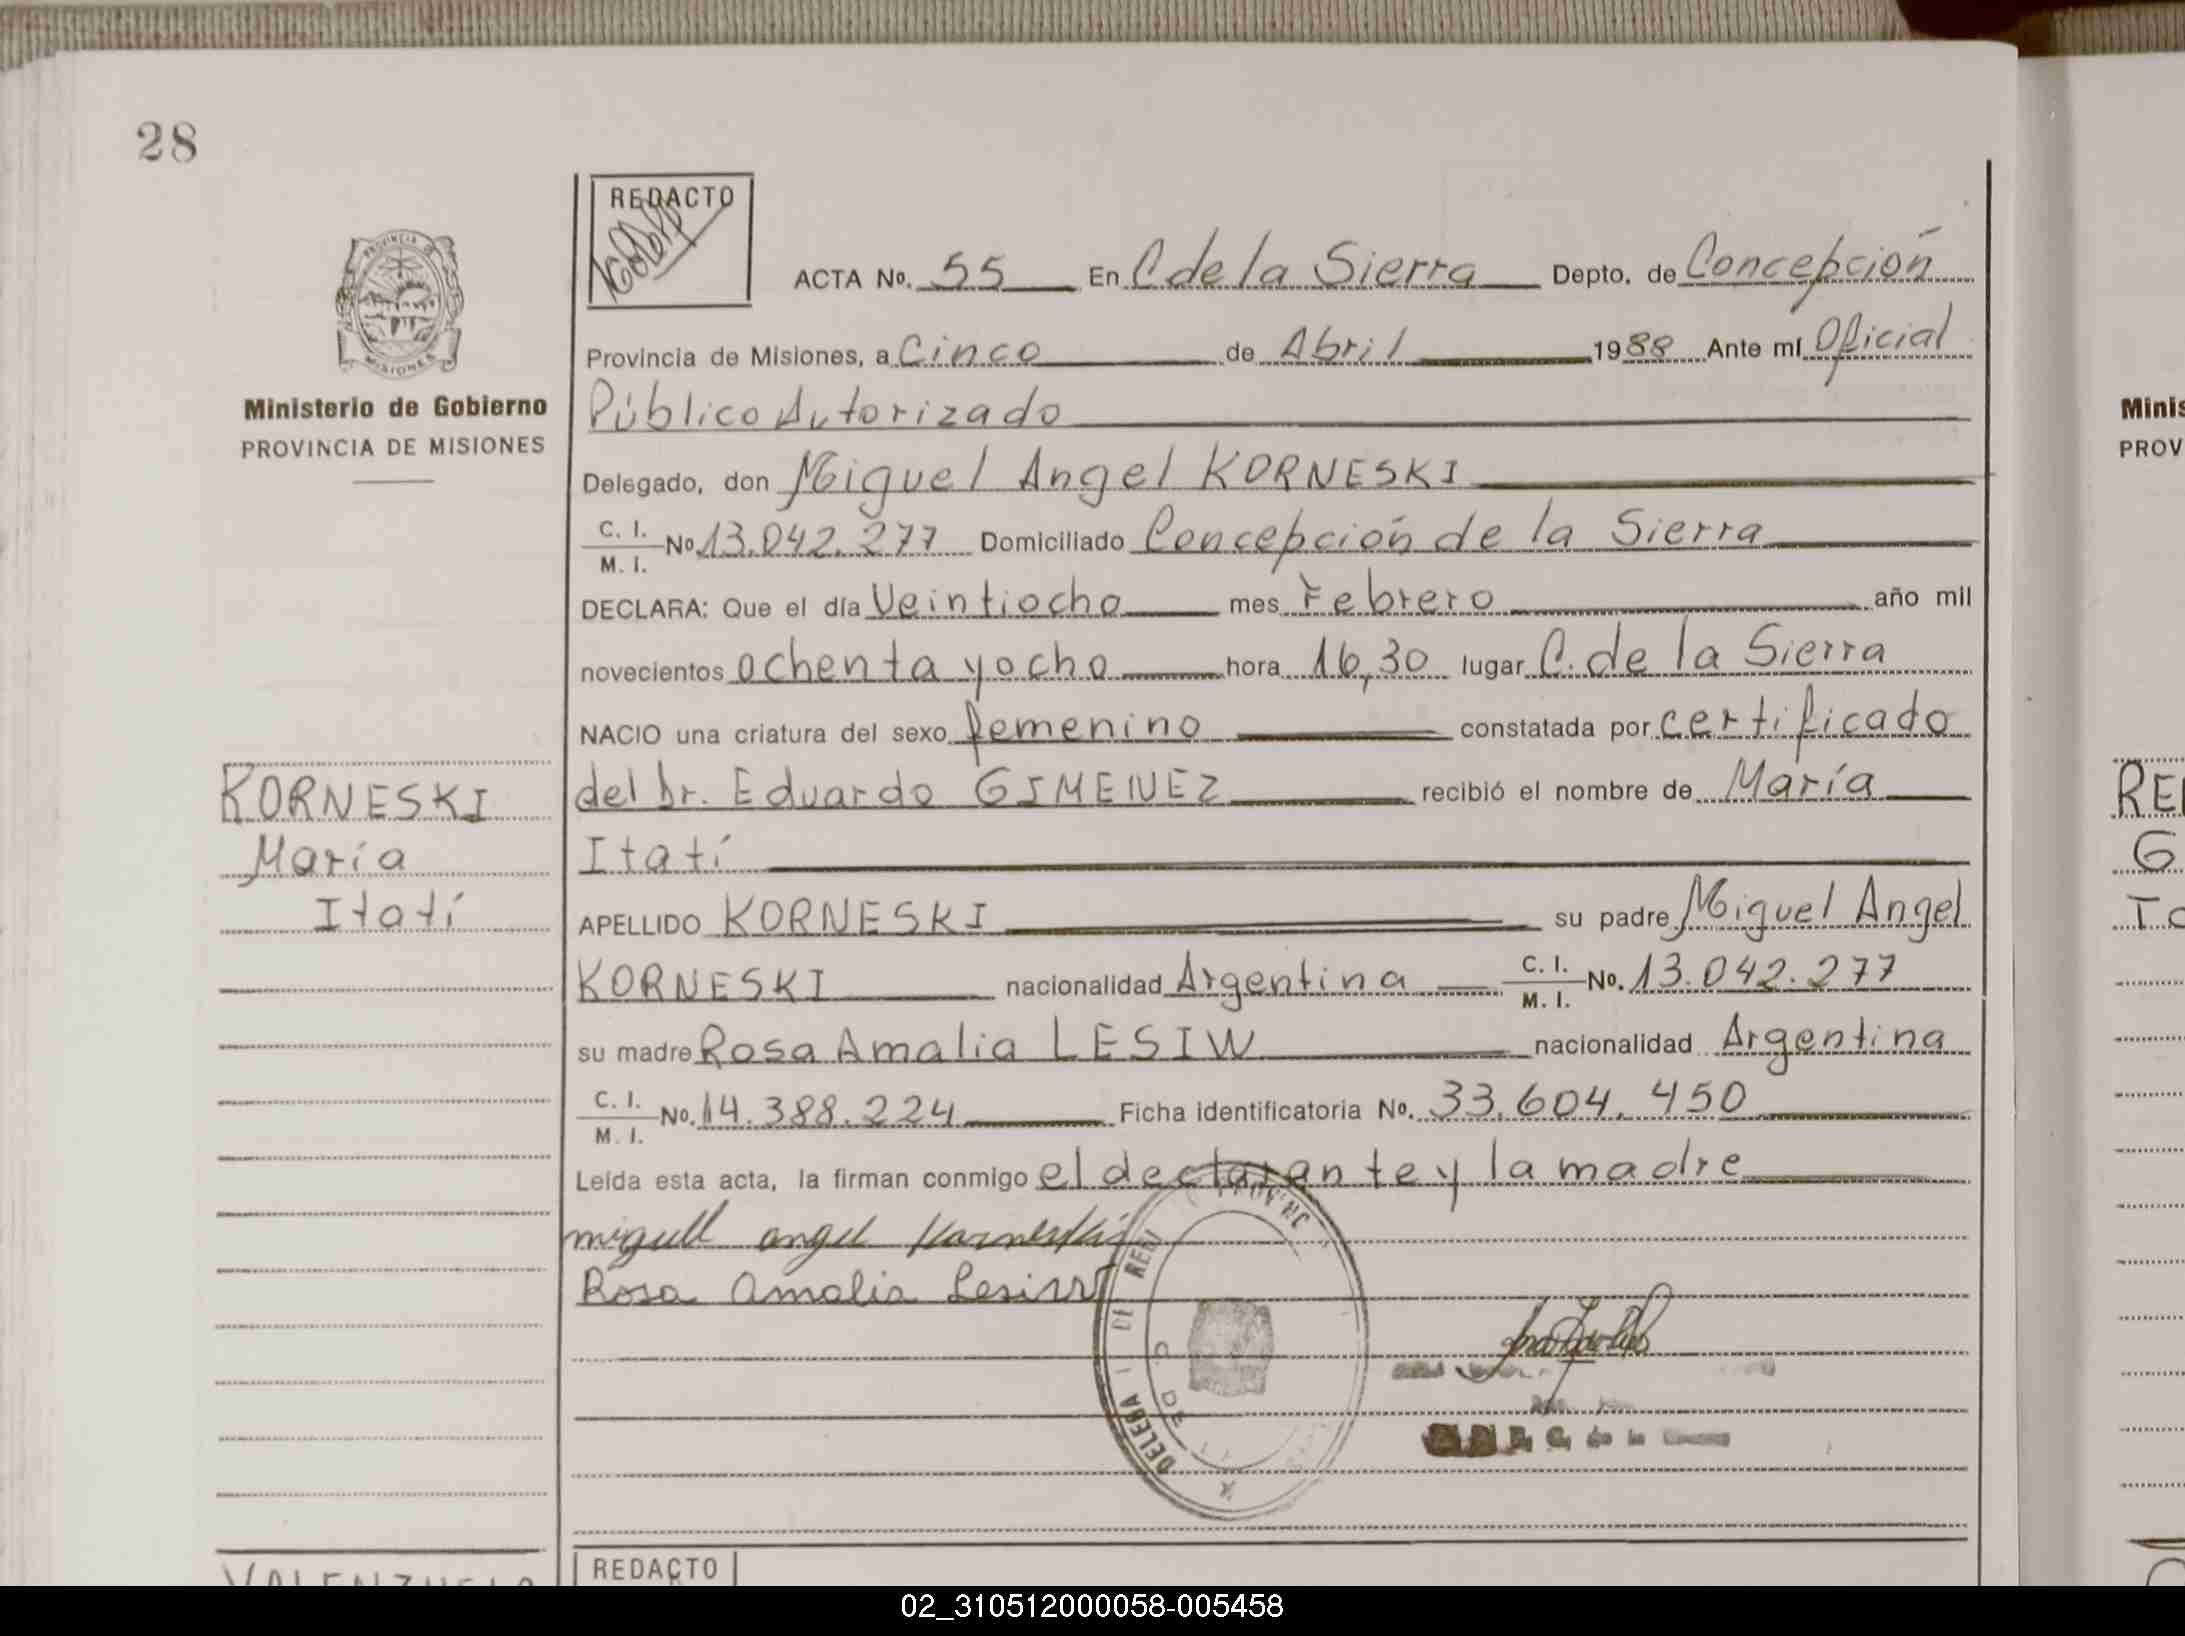 28
REDACTO
PROVINCIA DE
MISIONES
Ministerio de Gobierno
PROVINCIA DE MISIONES
ACTA No. 55 En C de la Sierra Depto. de Concepción
Provincia de Misiones, a Cinco de Abril 1988 Ante mí Oficial
Público Autorizado
Delegado, don Miguel Angel KORNESKI
C. I. M. I. No 13.042.277 Domiciliado Concepción de la Sierra
DECLARA: Que el día Veintiocho mes Febrero año mil
novecientos ochenta y ocho hora 16,30 lugar C. de la Sierra
NACIO una criatura del sexo femenino constatada por certificado
del Dr. Eduardo GIMENEZ recibió el nombre de María
Itatí
APELLIDO KORNESKI su padre Miguel Angel
KORNESKI nacionalidad Argentina C. I. M. I. No. 13.042.277
su madre Rosa Amalia LESIW nacionalidad Argentina
C. I. M. I. No. 14.388.224 Ficha identificatoria No. 33.604.450
Leída esta acta, la firman conmigo el declarante y la madre
miguel angel Korneski
Rosa Amalia Lesiw
KORNESKI
María
Itatí
DE REGI
PROVINC
DELEGA
C. de la
VALENZUELA
REDACTO
Minis
PROV
RE
G
02_310512000058-005458